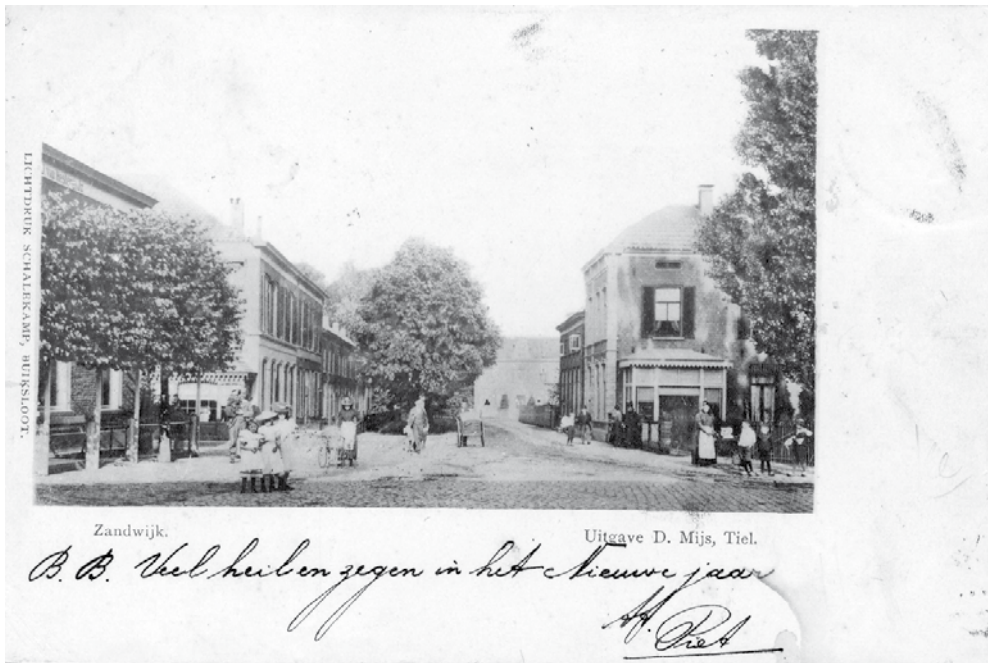 LICHTDRUK SCHALEKAMP, BUIKSLOOT.
Zandwijk.
Uitgave D. Mijs, Tiel.
B. B. Veel heil en zegen in het Nieuwe jaar
Piet